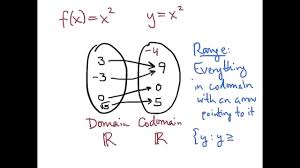 f(x) = x² y = x²
-4
3
9
-3
0
0
5
Domain Codomain
ℝ ℝ
Range:
Everything
in codomain
with an arrow
pointing to it
{y: y ≥